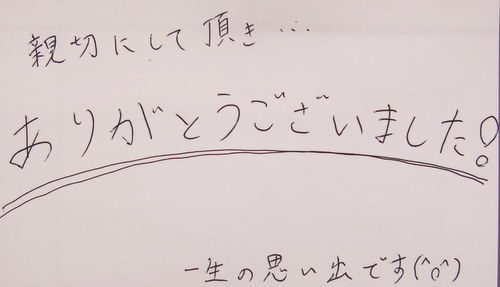 親切にして頂き…
ありがとうございました!
一生の思い出です(^o^)